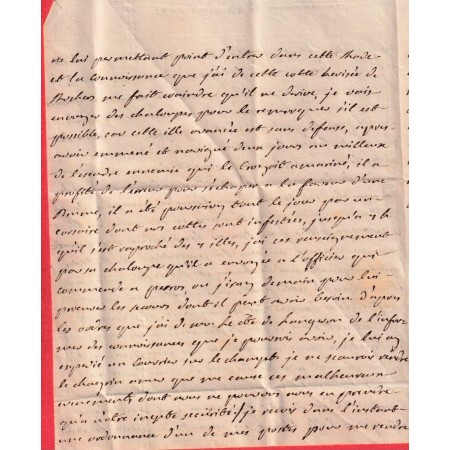 ne lui permettant point d'entrer dans cette Rade
et la connoissance que j'ai de cette cotte herissée de
Rochers me fait craindre qu'il ne derive, je vais
envoyer des chaloupes pour le remorquer s'il est
possible, car cette ille avancée est sans defense, apres
avoir emmené et navigué deux jours au millieux
de l'escadre ennemie qui le croyoit amariné, il a
profité de l'erreur pour s'echaper a la faveur d'une
Brume, il a été poursuivi tout le jour par un
corsaire dont nos cottes sont infectées, jusqu'a
qu'il s'est raproché des 7 illes, j'ai ces renseignements
par sa chaloupe qu'il a envoyée a l'officier qui
commande a perros, ou j'irai demain pour lui
procurer les secours dont il peut avoir besoin d'apres
les ordres que j'ai de Mr Le Cte de Langeron de l'infor
mer des connoissances que je pourrois avoir, je lui ai
expedié un Courier sur le champ, je ne scaurois rendre
le chagrin amer que me cause ces malheureux
evenements dont nous ne pouvons nous en prendre
qu'a notre inepte securité / je reçois dans l'instant
une ordonnance d'un de mes postes pour me rendre